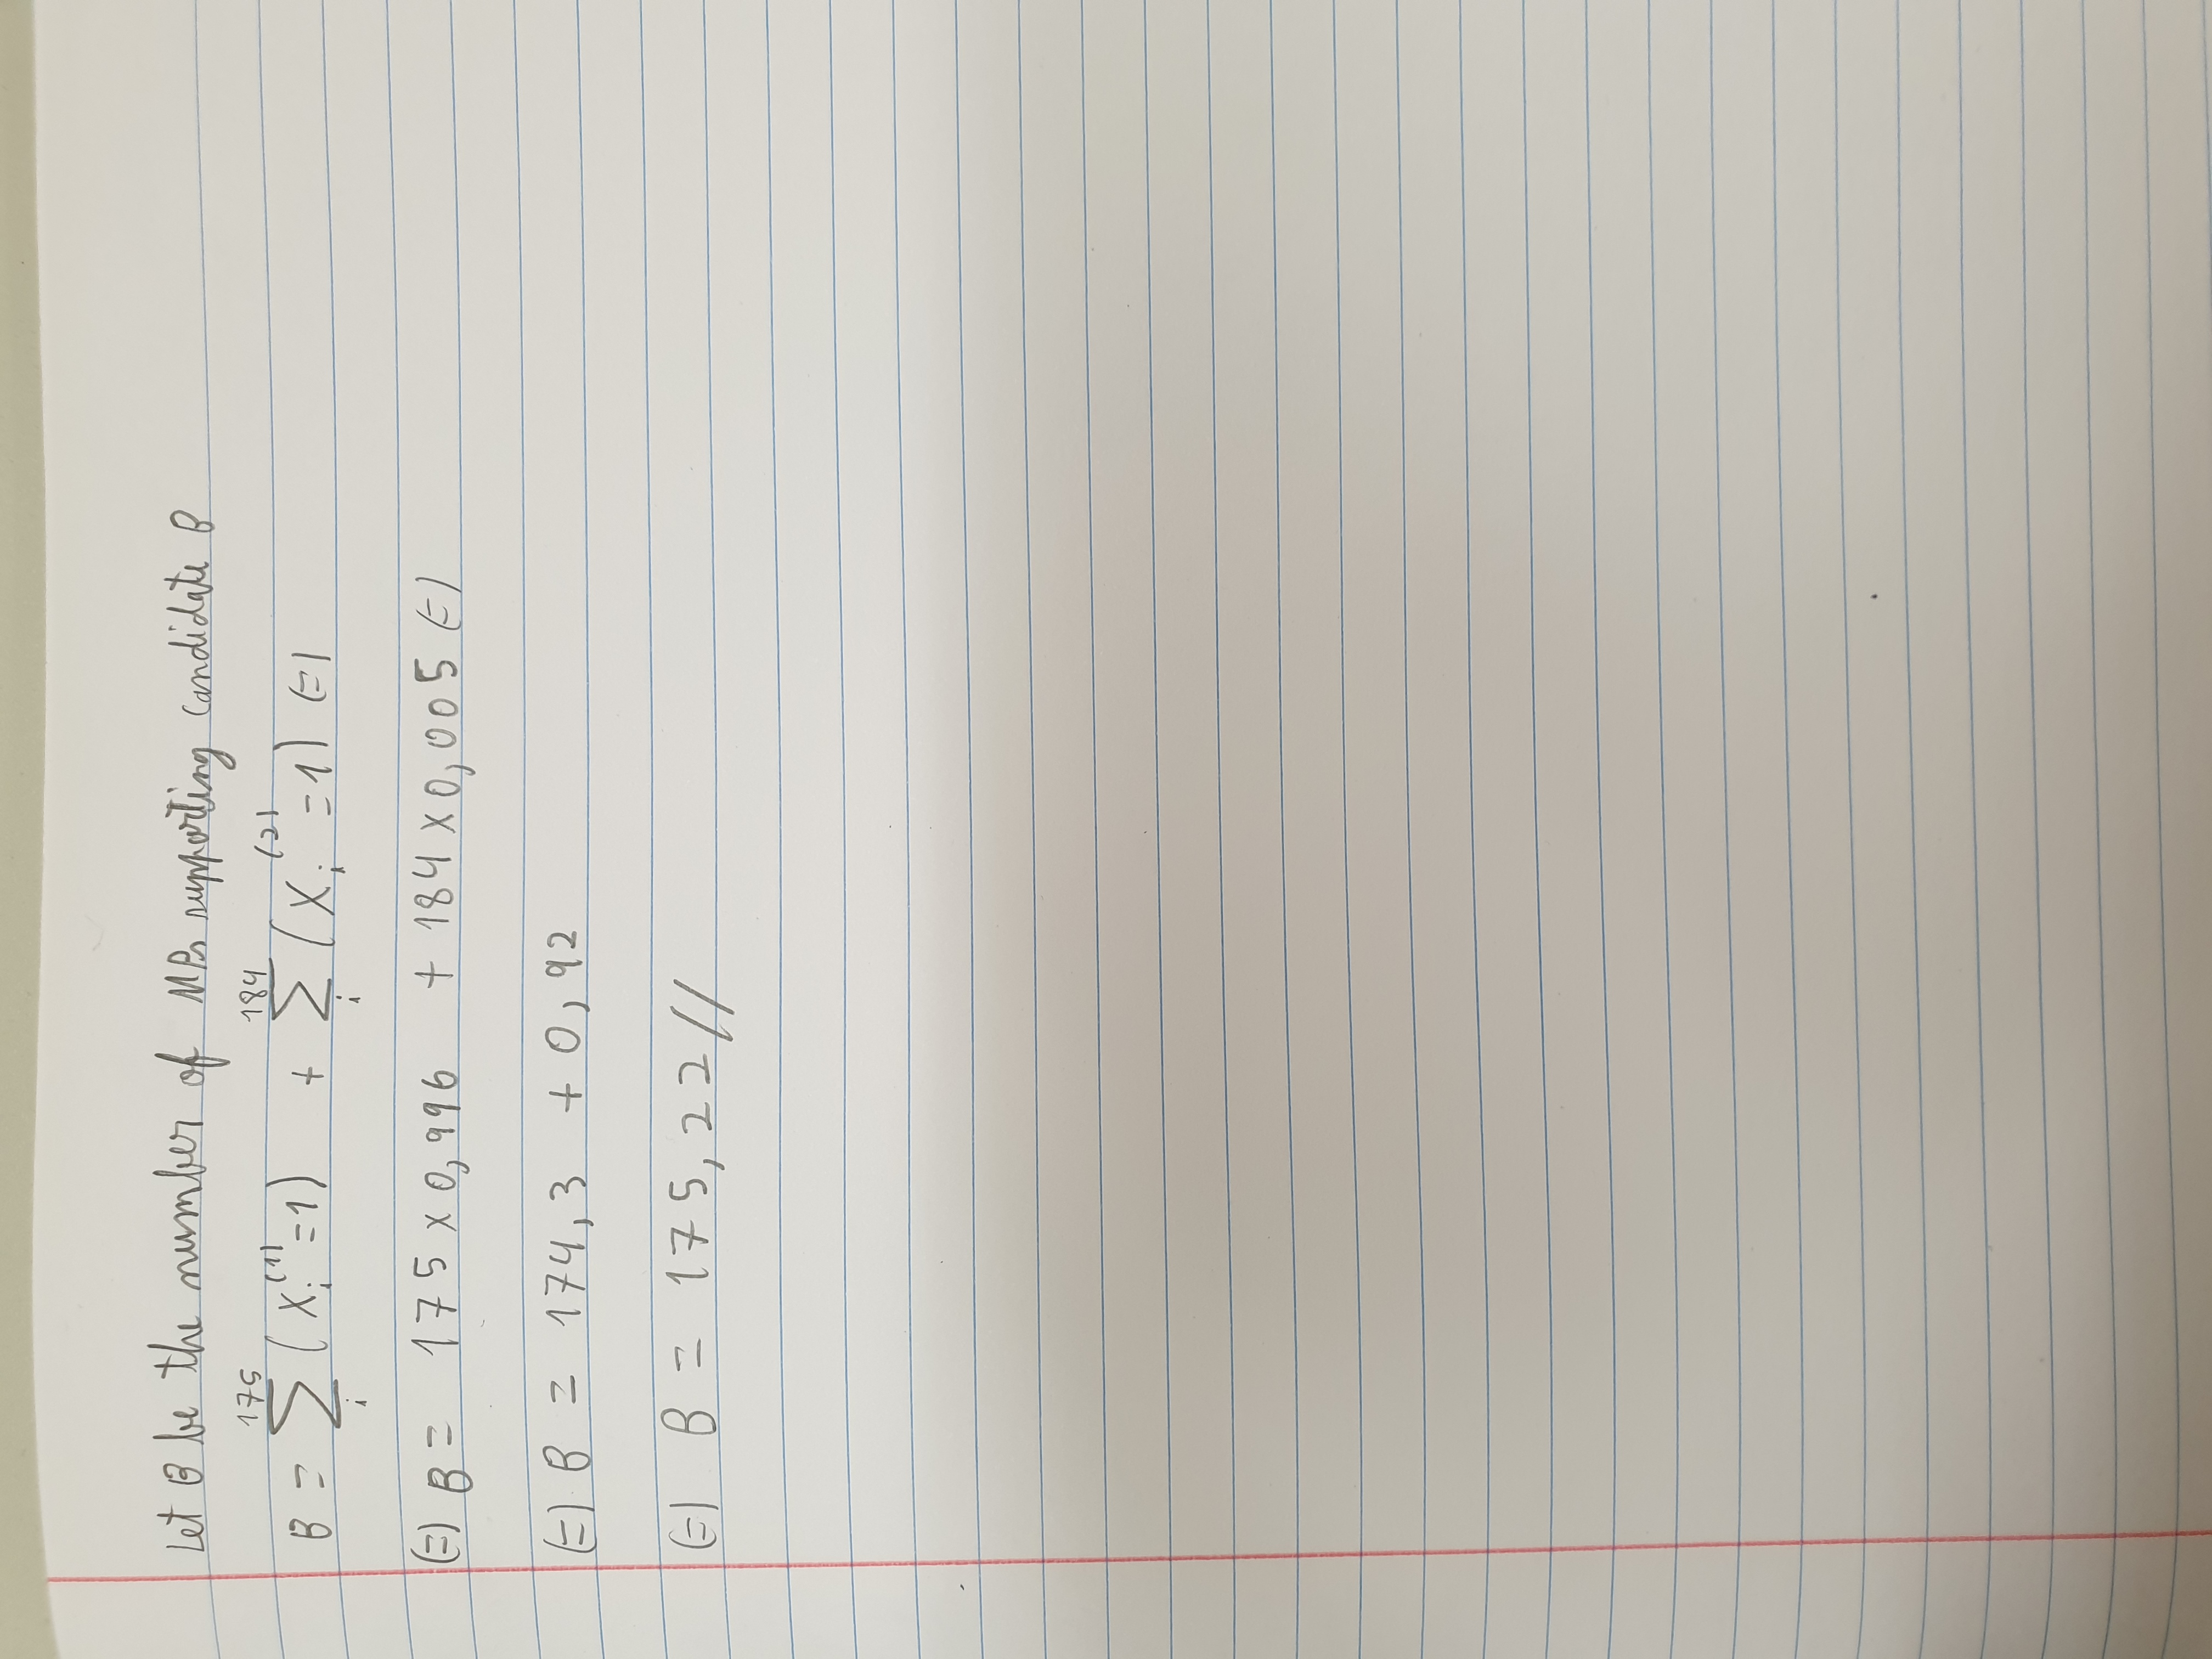 Let B be the number of MPs supporting candidate B
B = ∑_i^175 (X_i^(1) = 1) + ∑_i^184 (X_i^(2) = 1) (=)
(=) B = 175 x 0,996 + 184 x 0,005 (=)
(=) B = 174,3 + 0,92
(=) B = 175,22//